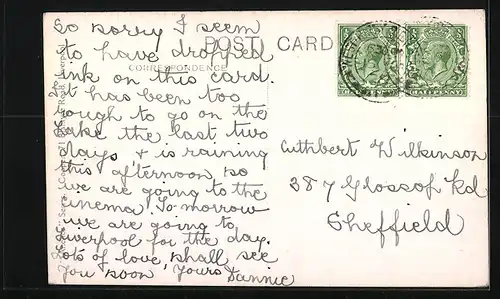 So sorry I seem
to have dropped
ink on this card.
It has been too
rough to go on the
lake the last two
days & is raining
this afternoon so
we are going to the
cinema. To-morrow
we are going to
Liverpool for the day.
Lots of love, shall see
you soon Yours Dannie
POST CARD
CORRESPONDENCE
HALFPENNY
HALFPENNY
Cuthbert Wilkinson
387 Glossop Rd
Sheffield